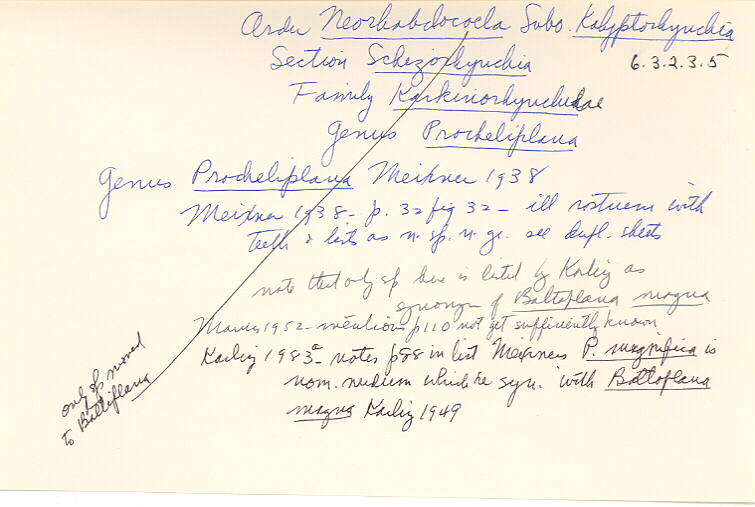 Order Neorhabdocoela Subo. Kalyptorhynchia
Section Schizorhynchia
6.3.2.3.5
Family Karkinorhynchidae
Genus Procheliplana
Genus Procheliplana Meixner 1938
Meixner 1938 - p. 32 fig 32 - ill rostrum with
teeth & lists as n. sp. n. ge. see dupl. sheets
note that only sp here is listed by Karling as
synonym of Baltoplana magna
Marcus 1952 - mentions p110 not yet sufficiently known
Karling 1983a - notes p88 in list Meixners P. magnifica is
nom. nudum which he syn. with Baltoplana
magna Karling 1949
only sp moved
to Baltiplana